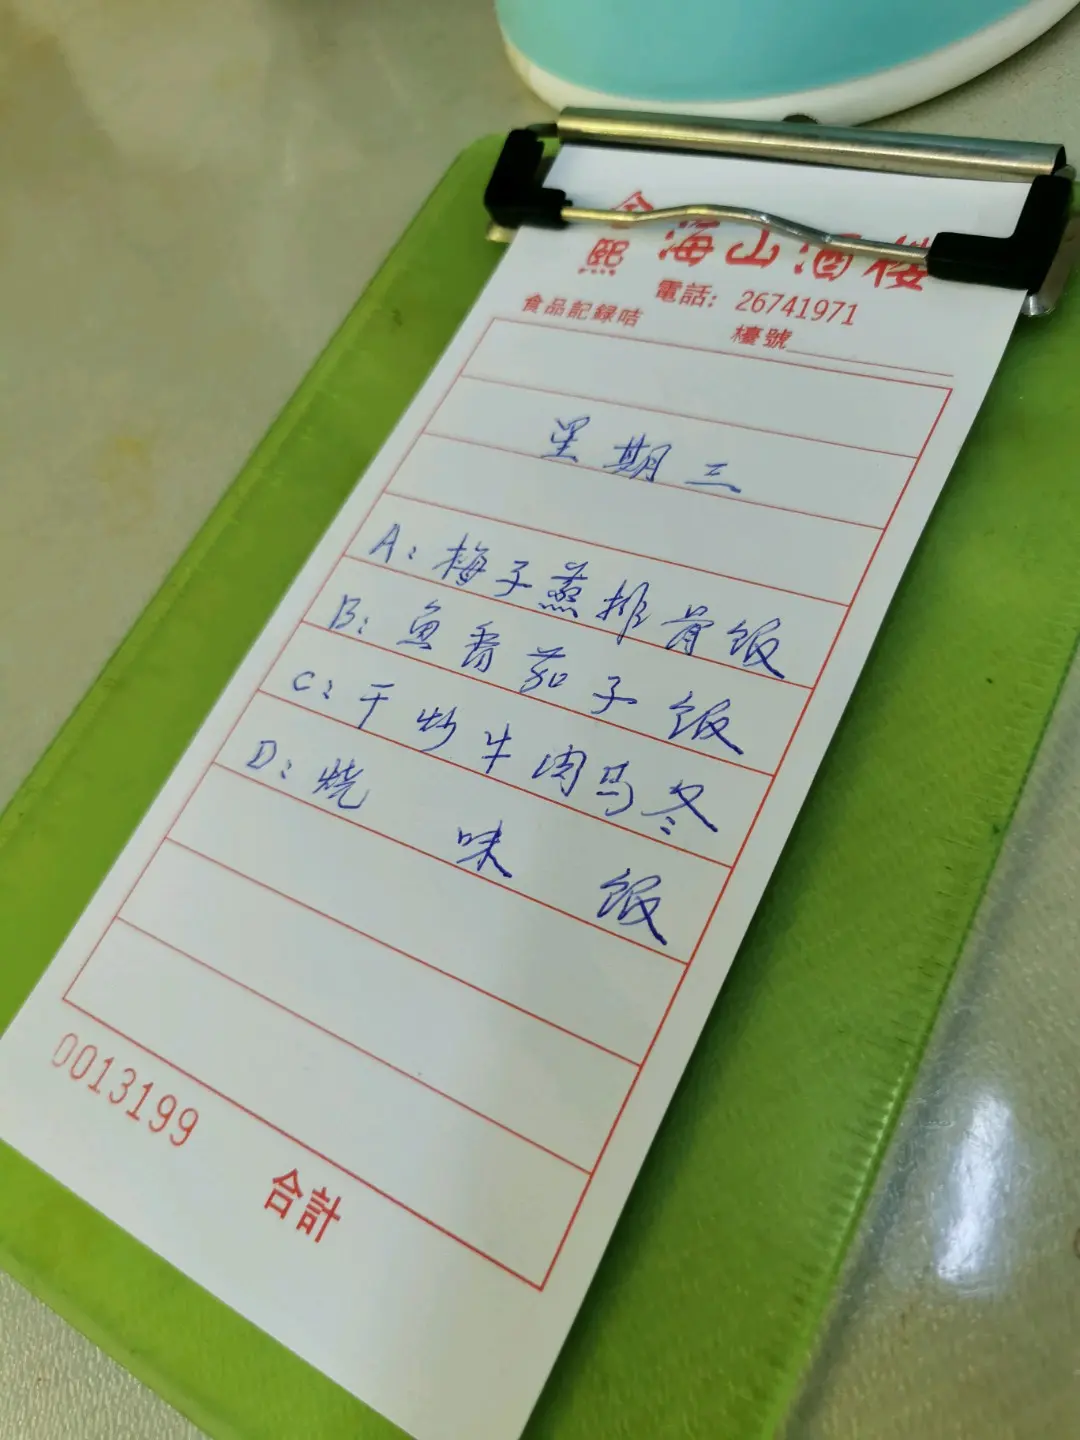 熙 海山酒楼
電話: 26741971
食品記録咭 檯號
星期三
A: 梅子蒸排骨饭
B: 鱼香茄子饭
C: 干炒牛肉乌冬
D: 烧味饭
0013199
合計